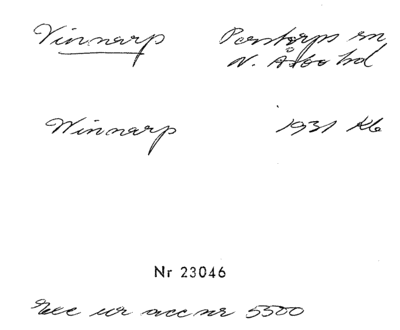 Vinnarp Perstorps sn
N. Åsbo hd
Winnarp 1931 Kb
Nr 23046
Exc ur acc nr 5500